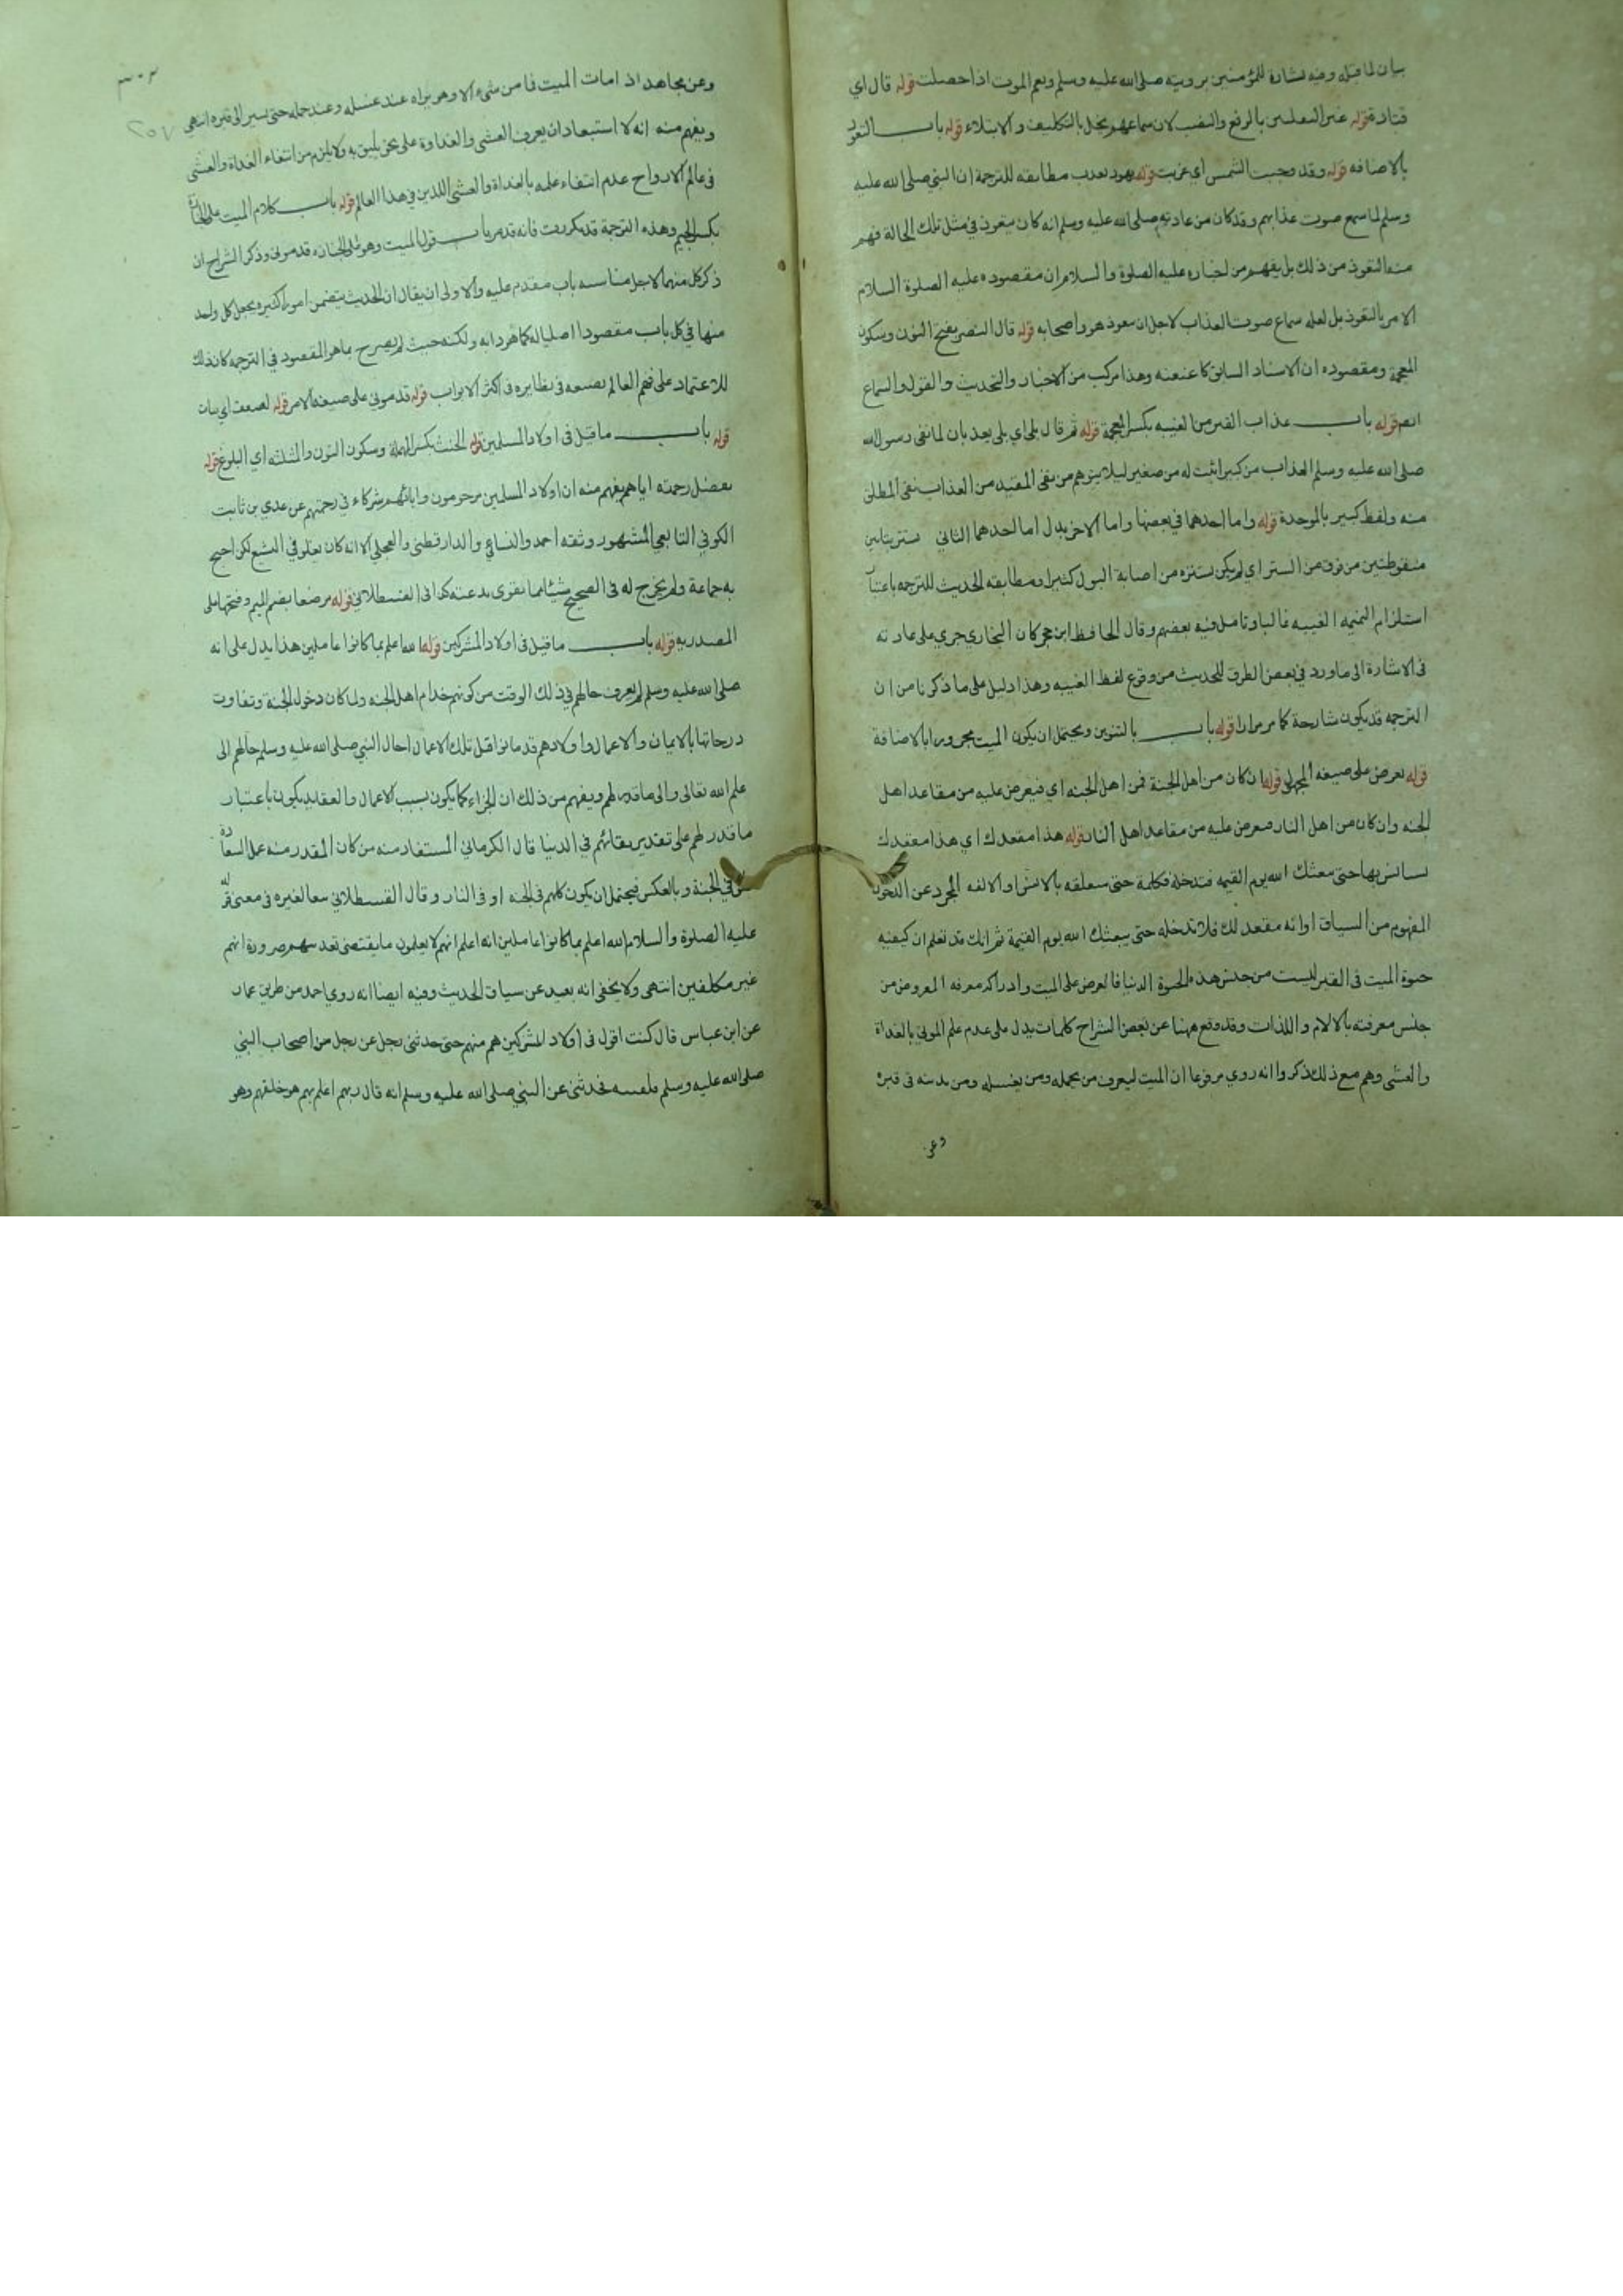 بيان لما قبله وفيه بشارة للمؤمنين برويته صلى الله عليه وسلم ونعم الموت اذا حصلت قوله قال اي
قتادة قوله غير الثقلين بالرفع والنصب لان سماعهم يخل بالتكليف والابتلاء قوله باب التعوذ
بالاضافه قوله وقد وجبت الشمس اي غربت قوله يهود تعذب مطابقه للترجمة ان النبي صلى الله عليه
وسلم لما سمع صوت عذابهم وقد كان من عادته صلى الله عليه وسلم انه كان يتعوذ في مثل تلك الحالة فهم
منه التعوذ من ذلك بل يفهم من اخباره عليه الصلوة والسلام ان مقصوده عليه الصلوة السلام
الامر بالتعوذ بل لعله سماع صوت العذاب لاجل ان يتعوذ هو واصحابه قوله قال النضر بفتح النون وسكون
المعجمة ومقصوده ان الاسناد السابق كا عنعنه وهذا مركب من الاخبار والتحديث والقول والسماع
انهم قوله باب عذاب القبر من الغيبه بكسر المعجمة قوله ثم قال بلى اي بلى يعذبان لما نفى رسول الله
صلى الله عليه وسلم العذاب من كبير اثبت له من صغير ليلا يتوهم من نفى المقيد من العذاب نفى المطلق
منه ولفظ كبير بالموحدة قوله واما احدهما في بعضها واما الاخر بدل اما احدهما الثاني يستتر بتائين
منقوطتين من فوق من الستر اي لم يكن يستنزه من اصابة البول كثيرا ومطابقه الحديث للترجمه باعتبا
استلزام النميمه الغيبه غالبا وتامل فيه بعضهم وقال الحافظ ابن حجر كان البخاري جري على عادته
في الاشارة الى ما ورد في بعض الطرق للحديث من وقوع لفظ الغيبه وهذا دليل على ما ذكرنا من ان
الترجمه قد يكون شارحة كما مر مرارا قوله باب بالتنوين ويحتمل ان يكون الميت مجرورا بالاضافة
قوله يعرض على صيغه المجهول قوله ان كان من اهل الجنة فمن اهل الجنه اي فيعرض عليه من مقاعد اهل
الجنه وان كان من اهل النار فيعرض عليه من مقاعد اهل النار قوله هذا مقعدك اي هذا مقعدك
تستانس بها حتى يبعثك الله يوم القيمه فتدخله فكلمة حتى متعلقه بالاستيناس والالفه المجرد عن الدخول
المفهوم من السياق او انه مقعد لك فلا تدخله حتى يبعثك الله يوم القيمة ثم انك قد تعلم ان كيفيه
حيوة الميت في القبر ليست من جنس هذه الحيوة الدنيا فالعرض على الميت وادراكه معرفه المعروض من
جنس معرفته بالالام واللذات وقد وقع ههنا عن بعض الشراح كلمات يدل على عدم علم الموتى بالغداة
والعشى وهم مع ذلك ذكروا انه روي مرفوعا ان الميت ليعرف من يحمله ومن يغسله ومن يدينه في قبره
وعن
٣٠٢
٢٥٧
وعن مجاهد اذا مات الميت فما من شيء الا وهو يراه عند غسله وعند حمله حتى يسير الى قبره انتهى
ويفهم منه انه لا استبعاد ان يعرف العشى والغداوة على نحو يليق به ولا يلزم من انتفاء الغداة والعشى
في عالم الارواح عدم انتفاء علمه بالغداة والعشى اللذين في هذا العالم قوله باب كلام الميت على الجنازة
بكسر الجيم وهذه الترجمة قد يكررت فانه قد مر باب قول الميت وهو على الجنازه قدموني وذكر الشراح ان
ذكر كل منهما لاجل مناسبه باب متقدم عليه والاولى ان يقال ان الحديث يتضمن امور اكثيره يجعل كل واحد
منها في كل باب مقصودا اصليا له كما هو دابه ولكنه حيث لم يصرح بما هو المقصود في الترجمه كان ذلك
للاعتماد على فهم العالم بصنيعه في نظايره في اكثر الابواب قوله قدموني على صيغه الامر قوله لصعق اي مات
قوله باب ما قيل في اولاد المسلمين قوله الحنث بكسر المهملة وسكون النون والمثلثه اي البلوغ قوله
بفضل رحمته اياهم يفهم منه ان اولاد المسلمين مرحومون وابائهم شركاء في رحمتهم عن عدي بن ثابت
الكوفي التابعي المشهور وثقه احمد والنسائي والدارقطني والعجلي الا انه كان يغلو في التشيع لكن احتج
به جماعة ولم يخرج له في الصحيح شيئا مما يقوى بدعته كذا في القسطلاني قوله مرضعا بضم الميم وفتحها على
المصدريه قوله باب ما قيل في اولاد المشركين قوله الله اعلم بما كانوا عاملين هذا يدل على انه
صلى الله عليه وسلم لم يعرف حالهم في ذلك الوقت من كونهم خدام اهل الجنه ولما كان دخول الجنة وتفاوت
درجاتها بالايمان والاعمال واولادهم قد ماتوا قبل تلك الاعمال احال النبي صلى الله عليه وسلم حالهم الى
علم الله تعالى والى ما قدر لهم ويفهم من ذلك ان الجزاء كما يكون بسبب الاعمال والعقايد يكون باعتبار
ما قدر لهم على تقدير بقائهم في الدنيا قال الكرماني المستفاد منه من كان المقدر منه عمل السعادة
في الجنة وبالعكس فيحتمل ان يكون كلهم في الجنه او في النار وقال القسطلاني تبعا لغيره في معنى قوله
عليه الصلوة والسلام الله اعلم بما كانوا عاملين انه اعلم انهم لا يعلمون ما يقتضي تعذيبهم ضرورة انهم
غير مكلفين انتهى ولا يخفى انه بعيد عن سياق الحديث وفيه ايضا انه روي احمد من طريق عمار
عن ابن عباس قال كنت اقول في اولاد المشركين هم منهم حتى حدثنى رجل عن رجل من اصحاب النبي
صلى الله عليه وسلم فلقيته فحدثنى عن النبي صلى الله عليه وسلم انه قال ربهم اعلم بهم هو خلقهم وهو